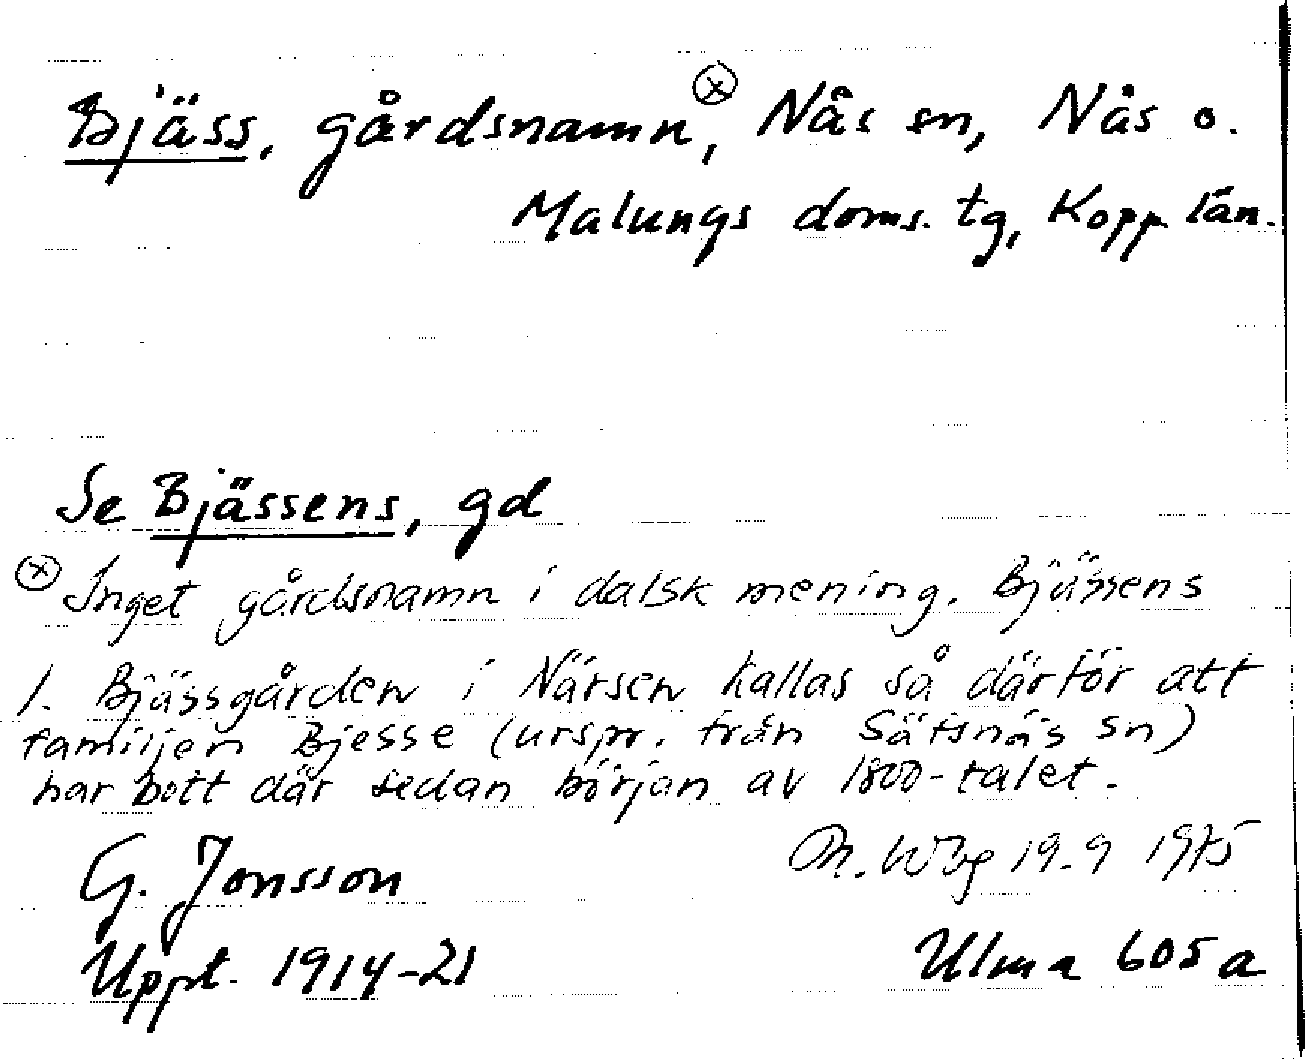 Bjäss, gårdsnamn ⓧ, Nås sn, Nås o.
Malungs doms. tg, Kopp. län.
Se Bjässens, gd
ⓧ Inget gårdsnamn i dalsk mening. Bjässens
l. Bjässgården i Närsen kallas så därför att
familjen Bjesse (urspr. från Säfsnäs sn)
har bott där sedan början av 1800-talet.
G. Jonsson
Uppt. 1914-21
19.9 1975
Ulma 605 a